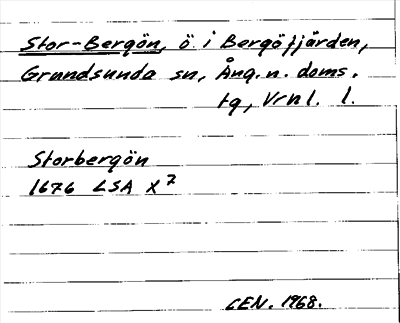 Stor-Bergön, ö i Bergöfjärden,
Grundsunda sn, Ång. n. doms.
tg, Vrnl. l.
Storbergön
1676 LSA X 7
CEN. 1968.